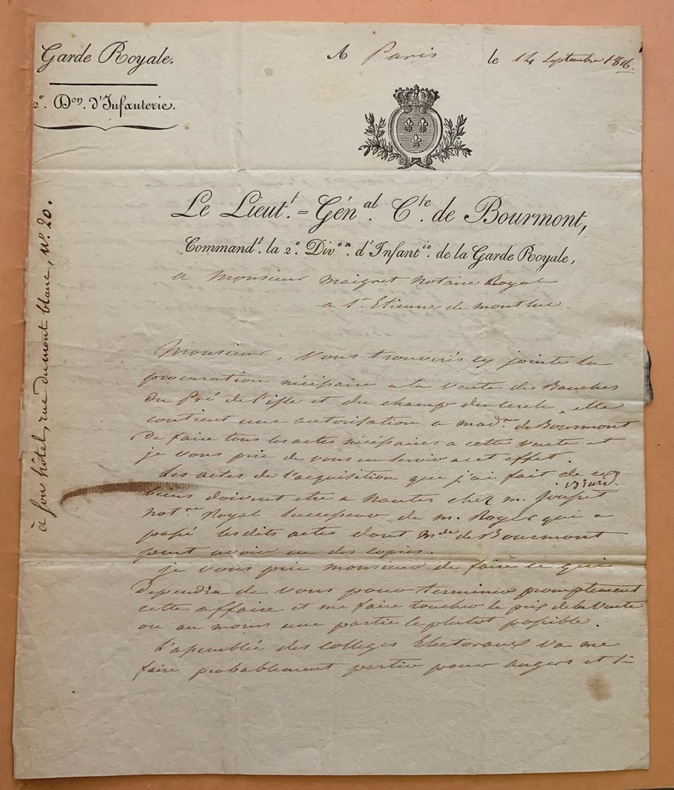 Garde Royale.
2e. Don. d'Infanterie.
A Paris le 14 Septembre 1816.
Le Lieutt.=Génal. Cte. de Bourmont,
Commandt. la 2e. Divon. d'Infantie. de la Garde Royale,
a Monsieur Maigret Notaire Royal
a St. Etienne de montluc.
à son hôtel, rue du mont blanc, No. 20.
Monsieur, Vous trouverés cy jointe la
procuration nécessaire a la Vente des Bauches
du Pré de l'isle et du champ du cercle, elle
contient une autorisation a made. de Bourmont
de faire tous les actes nécessaires a cette Vente et
je vous prie de vous en servir a cet effet.
Les actes de l'acquisition que j'ai fait de ces
biens doivent etre a Nantes chez m.
notre. Royal Successeur de m. Roger qui a
passé lesdits actes dont Mde. de Bourmont
peut avoir eu des copies.
je vous prie monsieur de faire ce qui
dependra de vous pour terminer promptement
cette affaire et me faire toucher le prix de la Vente
ou au moins une partie le plutot possible.
L'assemblée des colleges Electoraux va me
faire probablement partir pour angers et si